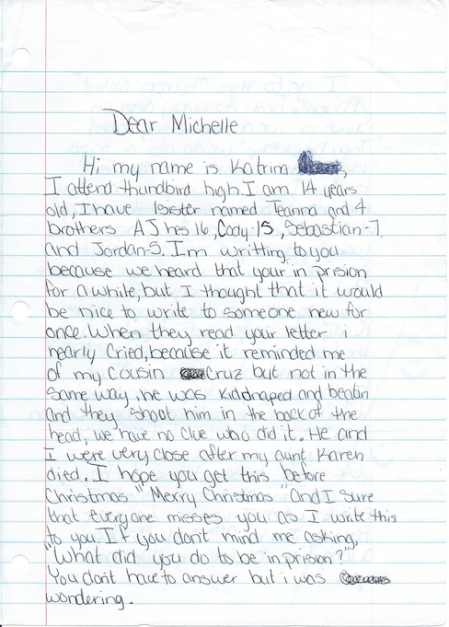 Dear Michelle
Hi my name is Katrina
I attend thundbird high. I am 14 years
old, I have 1sister named Jeanna and 4
brothers AJ hes 16, Cody-15, Sebastian-7,
and Jordan-5. I'm writting to you
because we heard that your in prision
for a while, but I thought that it would
be nice to write to someone new for
once. When they read your letter i
nearly cried, because it reminded me
of my cousin Cruz but not in the
same way, he was kiddnaped and beatin
and they shoot him in the back of the
head, we have no clue who did it. He and
I were very close after my aunt Karen
died. I hope you get this before
Christmas "Merry Christmas" and I sure
that everyone misses you as I write this
to you. If you don't mind me asking,
"What did you do to be in prision?"
You don't have to answer but i was
wondering.